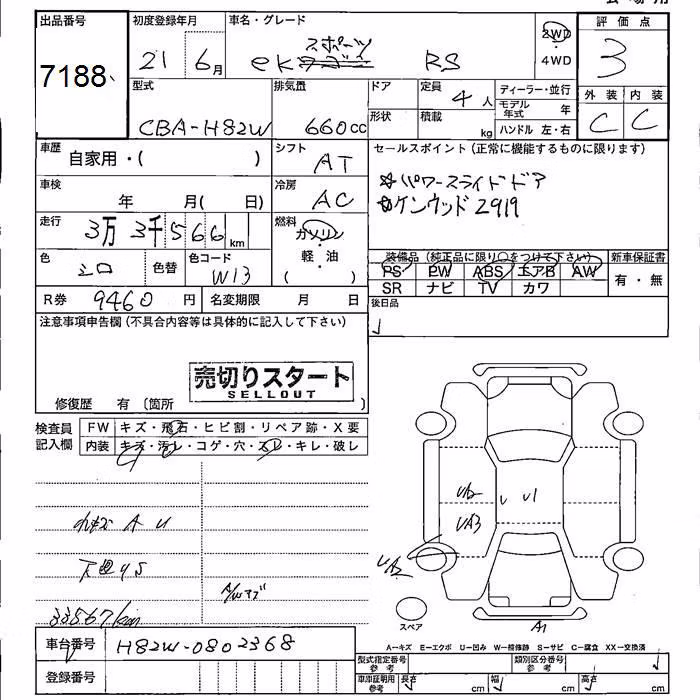 出品番号 初度登録年月 車名・グレード 評価点
7188 21 6月 スポーツ ek RS 2WD 4WD 3
型式 排気量 ドア 定員 4人 ディーラー・並行 外装 内装
CBA-H82W 660cc 形状 積載 kg モデル年式 年 C C
ハンドル 左・右
車歴 自家用・( ) シフト AT セールスポイント(正常に機能するものに限ります)
車検 年 月( 日) 冷房 AC ☆パワースライドドア
☆ケンウッド2919
走行 3万3千566km 燃料 ガソリン
軽・油
( )
色 シロ 色替 色コード W13
装備品(純正品に限り○をつけて下さい) 新車保証書
PS PW ABS エアB AW 有・無
SR ナビ TV カワ
R券 9460円 名変期限 月 日 後日品
注意事項申告欄(不具合内容等は具体的に記入して下さい)
売切りスタート
SELLOUT
修復歴 有〔箇所 〕
検査員記入欄 FW キズ・飛石・ヒビ割・リペア跡・X要
内装 キズ・汚レ・コゲ・穴・スレ・キレ・破レ
A U
33567km
U2 U U1
UA3
A1
スペア
A-キズ E-エクボ U-凹み W-補修跡 S-サビ C-腐食 XX-交換済
車台番号 H82W-0802368
登録番号
型式指定番号 参考 類別区分番号 参考
車庫証明用 参考 長さ cm 幅 cm 高さ cm